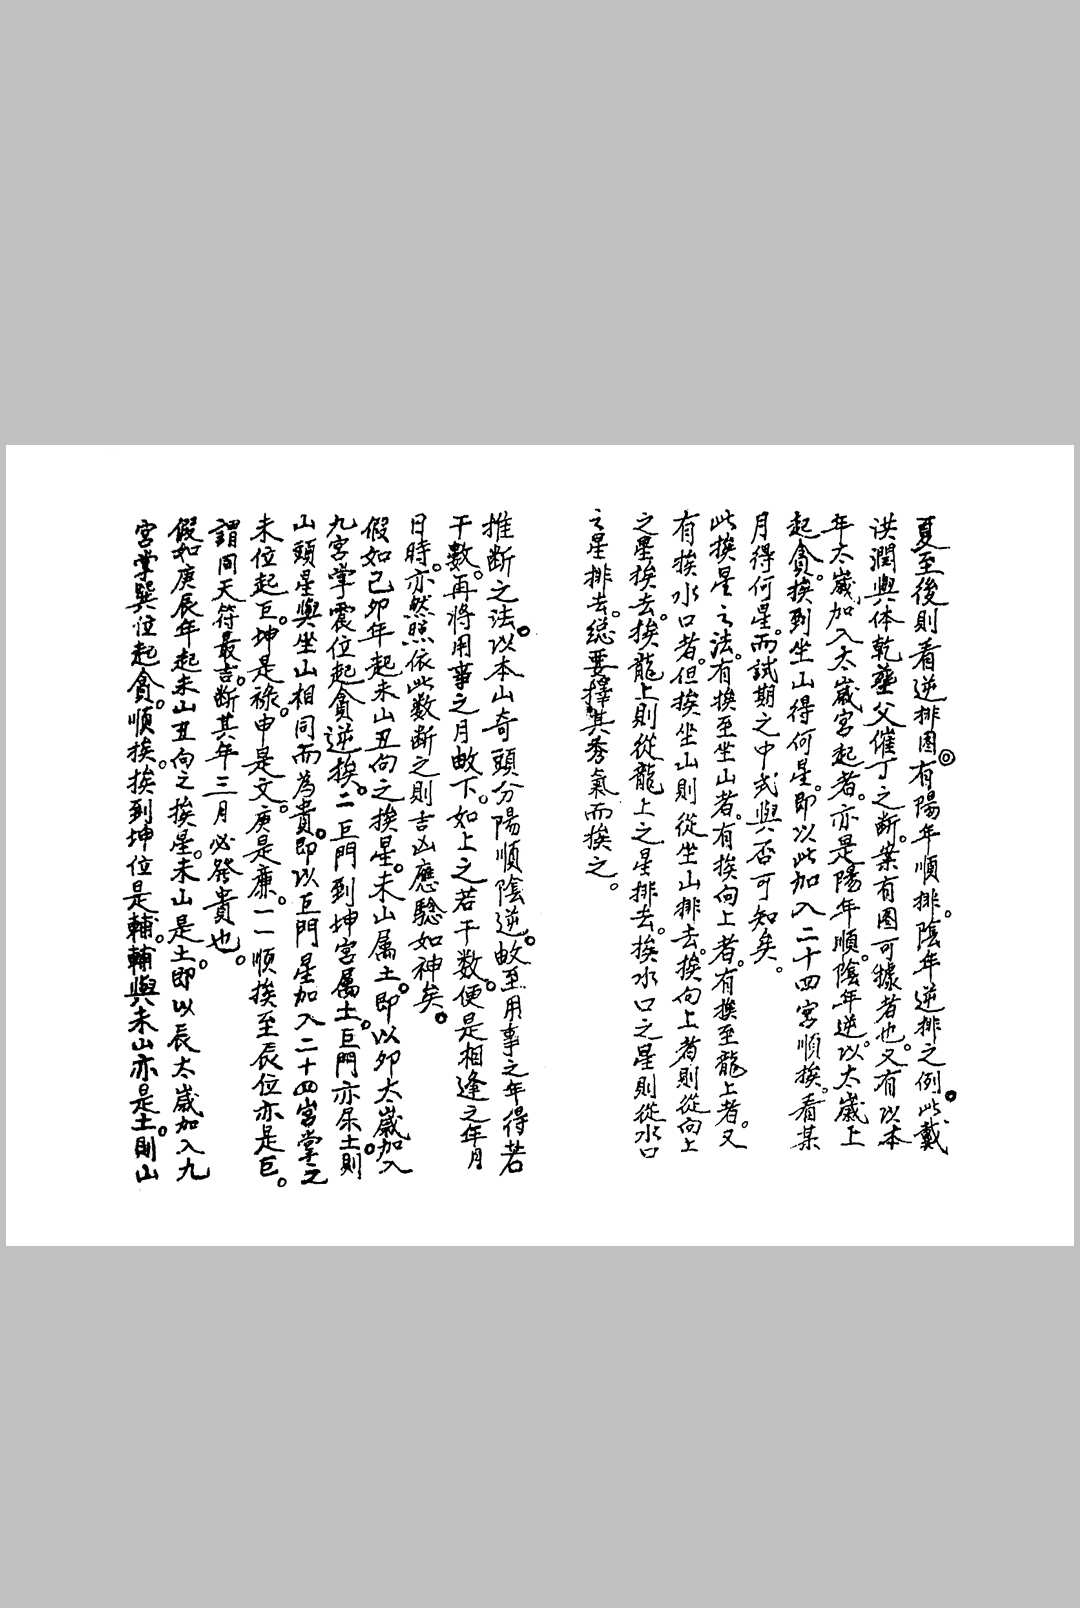 夏至後則看逆排圖◎有陽年順排。陰年逆排之例。此戴
洪潤與体乾塟父催丁之断。業有圖可據者也。又有以本
年太歲加入太歲宮起者。亦是陽年順。陰年逆。以太歲上
起貪。挨到坐山得何星。即以此加入二十四宮順挨。看某
月得何星。而試期之中式與否可知矣。
此挨星之法。有挨至坐山者。有挨向上者。有挨至龍上者。又
有挨水口者。但挨坐山則從坐山排去。挨向上者則從向上
之星挨去。挨龍上則從龍上之星排去。挨水口之星則從水口
之星排去。總要擇其秀氣而挨之。
推断之法。以本山奇頭分陽順陰逆。至用事之年得若
干數。再將用事之月下。如上之若干数。便是相逢之年月
日時。亦然照依此数断之則吉凶應騐如神矣。
假如己卯年起未山丑向之挨星。未山属土。即以卯太歲加入
九宮掌震位起貪逆挨。二巨門到坤宮属土。巨門亦属土。則
山頭星與坐山相同而為貴。即以巨門星加入二十四宮掌之
未位起巨。坤是祿。申是文。庚是廉。一一順挨至辰位亦是巨。
謂同天符最吉。断其年三月必發貴也。
假如庚辰年起未山丑向之挨星。未山是土。即以辰太歲加入九
宮掌巽位起貪。順挨。挨到坤位是輔。輔與未山亦是土。則山